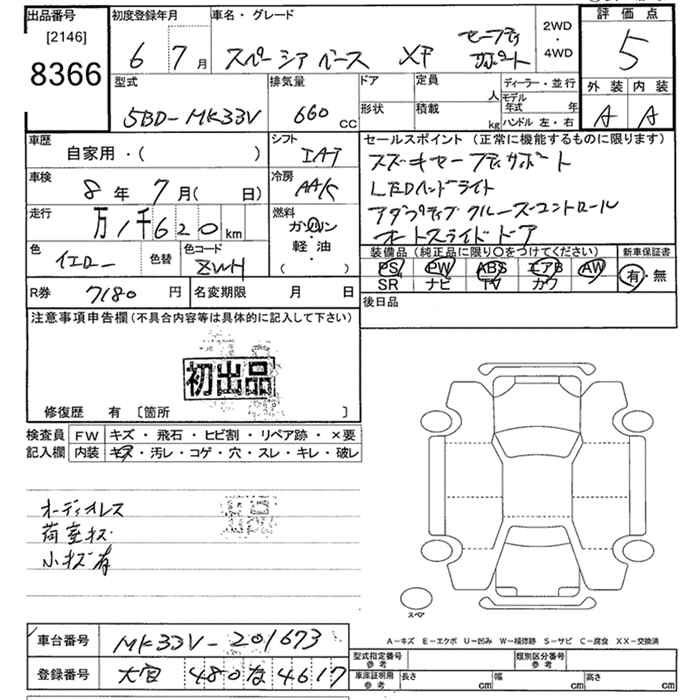 出品番号
[2146]
8366
初度登録年月
6 7月
車名・グレード
スペーシア ベース XF セーフティサポート
2WD・4WD
評価点
5
外装 内装
A A
型式
5BD-MK33V
排気量
660 CC
ドア
形状
定員
人
積載
kg
ディーラー・並行
モデル年式 年
ハンドル 左・右
車歴
自家用・( )
シフト
IAT
車検
8年7月( 日)
冷房
AAC
走行
万1千620km
燃料
ガソリン
軽・油
( )
色
イエロー
色替
色コード
ZWH
R券 7180円
名変期限 月 日
セールスポイント(正常に機能するものに限ります)
スズキセーフティサポート
LEDヘッドライト
アダプティブクルーズコントロール
オートスライドドア
装備品(純正品に限り○をつけてください)
新車保証書
PS PW ABS エアB AW
SR ナビ TV カワ
有・無
後日品
注意事項申告欄(不具合内容等は具体的に記入して下さい)
初出品
修復歴 有 [箇所 ]
検査員記入欄
FW キズ・飛石・ヒビ割・リペア跡・×要
内装 キズ・汚レ・コゲ・穴・スレ・キレ・破レ
オーディオレス
荷室キズ
小キズ有
スペア
A－キズ E－エクボ U－凹み W－補修跡 S－サビ C－腐食 XX－交換済
車台番号 MK33V-201673
登録番号 大宮 480 な 4617
型式指定番号 参考
類別区分番号 参考
車庫証明用 参考
長さ cm
幅 cm
高さ cm